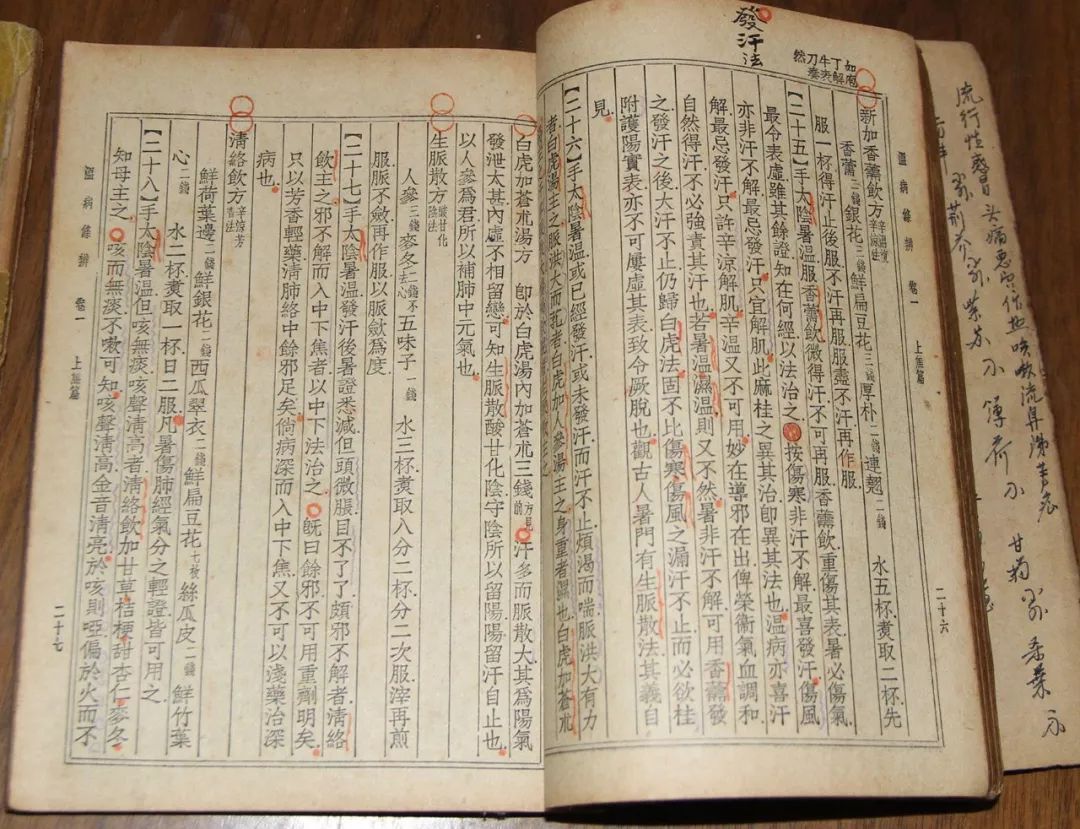 發汗法
如庖
丁解
牛表
刀奏
然
新加香薷飲方
香薷二錢銀花三錢鮮扁豆花三錢厚朴二錢連翹二錢　水五杯煮取二杯先
服一杯得汗止後服不汗再服服盡不汗再作服
【二十五】手太陰暑温服香薷飲微得汗不可再服香薷飲重傷其表暑必傷氣
最令表虛雖其餘證知在何經以法治之按傷寒非汗不解最喜發汗傷風
亦非汗不解最忌發汗只宜解肌此麻桂之異其治卽異其法也温病亦喜汗
解最忌發汗只許辛涼解肌辛温又不可用妙在導邪在出俾榮衞氣血調和
自然得汗不必強責其汗也若暑温濕温則又不然暑非汗不解可用香薷發
之發汗之後大汗不止仍歸白虎法固不比傷寒傷風之漏汗不止而必欲桂
附護陽實表亦不可屢虛其表致令厥脫也觀古人暑門有生脈散法其義自
見
【二十六】手太陰暑温或已經發汗或未發汗而汗不止煩渴而喘脈洪大有力
者白虎湯主之脈洪大而芤者白虎加人參湯主之身重者濕也白虎加蒼朮
温病條辨　卷一　上焦篇　二十六
白虎加蒼朮湯方　卽於白虎湯內加蒼朮三錢　汗多而脈散大其爲陽氣
發泄太甚內虛不相留戀可知生脈散酸甘化陰守陰所以留陽陽留汗自止也
以人參爲君所以補肺中元氣也
生脈散方酸甘化陰法
人參三錢麥冬去心二錢不五味子一錢　水三杯煮取八分二杯分二次服滓再煎
服脈不斂再作服以脈斂爲度
【二十七】手太陰暑温發汗後暑證悉減但頭微脹目不了了頗邪不解者淸絡
飲主之邪不解而入中下焦者以中下法治之　旣曰餘邪不可用重劑明矣
只以芳香輕藥淸肺絡中餘邪足矣倘病深而入中下焦又不可以淺藥治深
病也
淸絡飲方辛涼芳香法
鮮荷葉邊二錢鮮銀花二錢西瓜翠衣二錢鮮扁豆花七枝絲瓜皮二錢　鮮竹葉
心二錢　水二杯煮取一杯日二服凡暑傷肺經氣分之輕證皆可用之
【二十八】手太陰暑温但咳無痰咳聲淸高者淸絡飲加甘草桔梗甜杏仁麥冬
知母主之　咳而無痰不嗽可知咳聲淸高金音淸亮於咳則啞偏於火而不
温病條辨　卷一　上焦篇　二十七
流行性感冒头痛恶寒作热咳嗽流鼻涕
荆芥　紫苏　薄荷　甘草